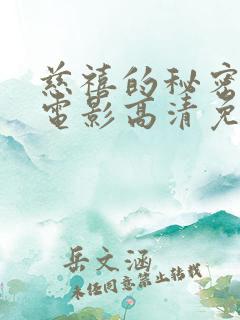 慈禧的秘密
電影高清免
岳文涵
未经同意禁止转载